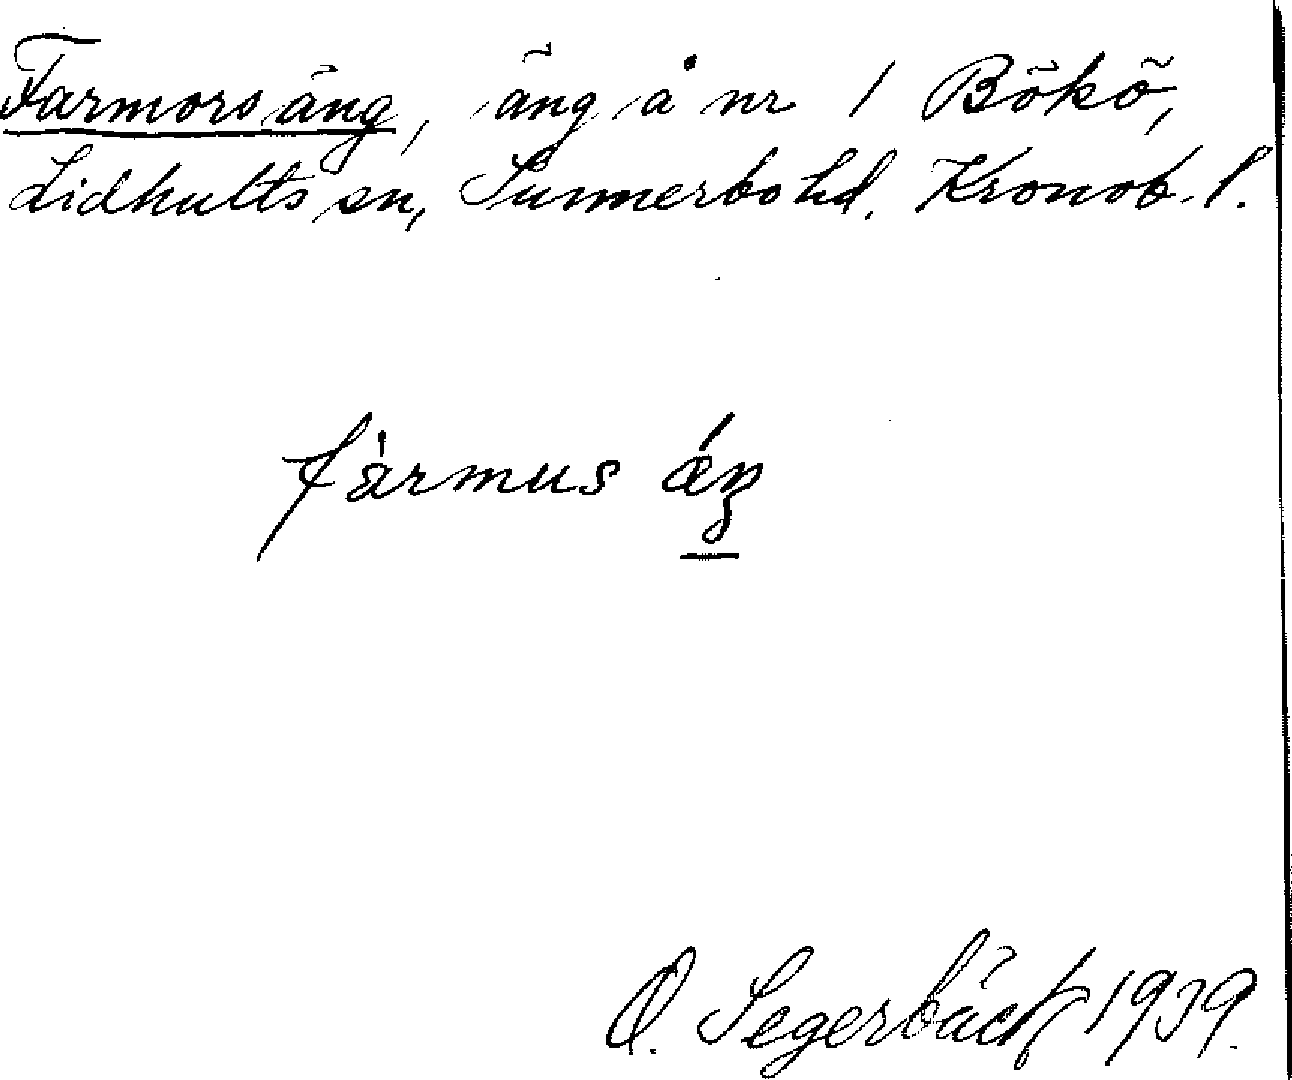 Farmorsäng, äng å nr 1 Bökö,
Lidhults sn, Sunnerbo hd. Kronob. l.
fàrmus ǽŋ
O. Segerbäck 1939.